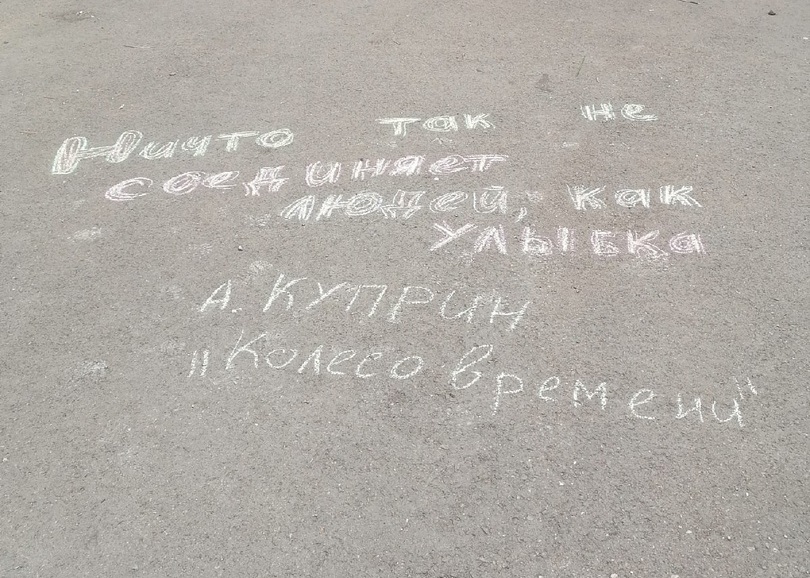 Ничто так не
соединяет
людей, как
улыбка
А. КУПРИН
"Колесо времени"